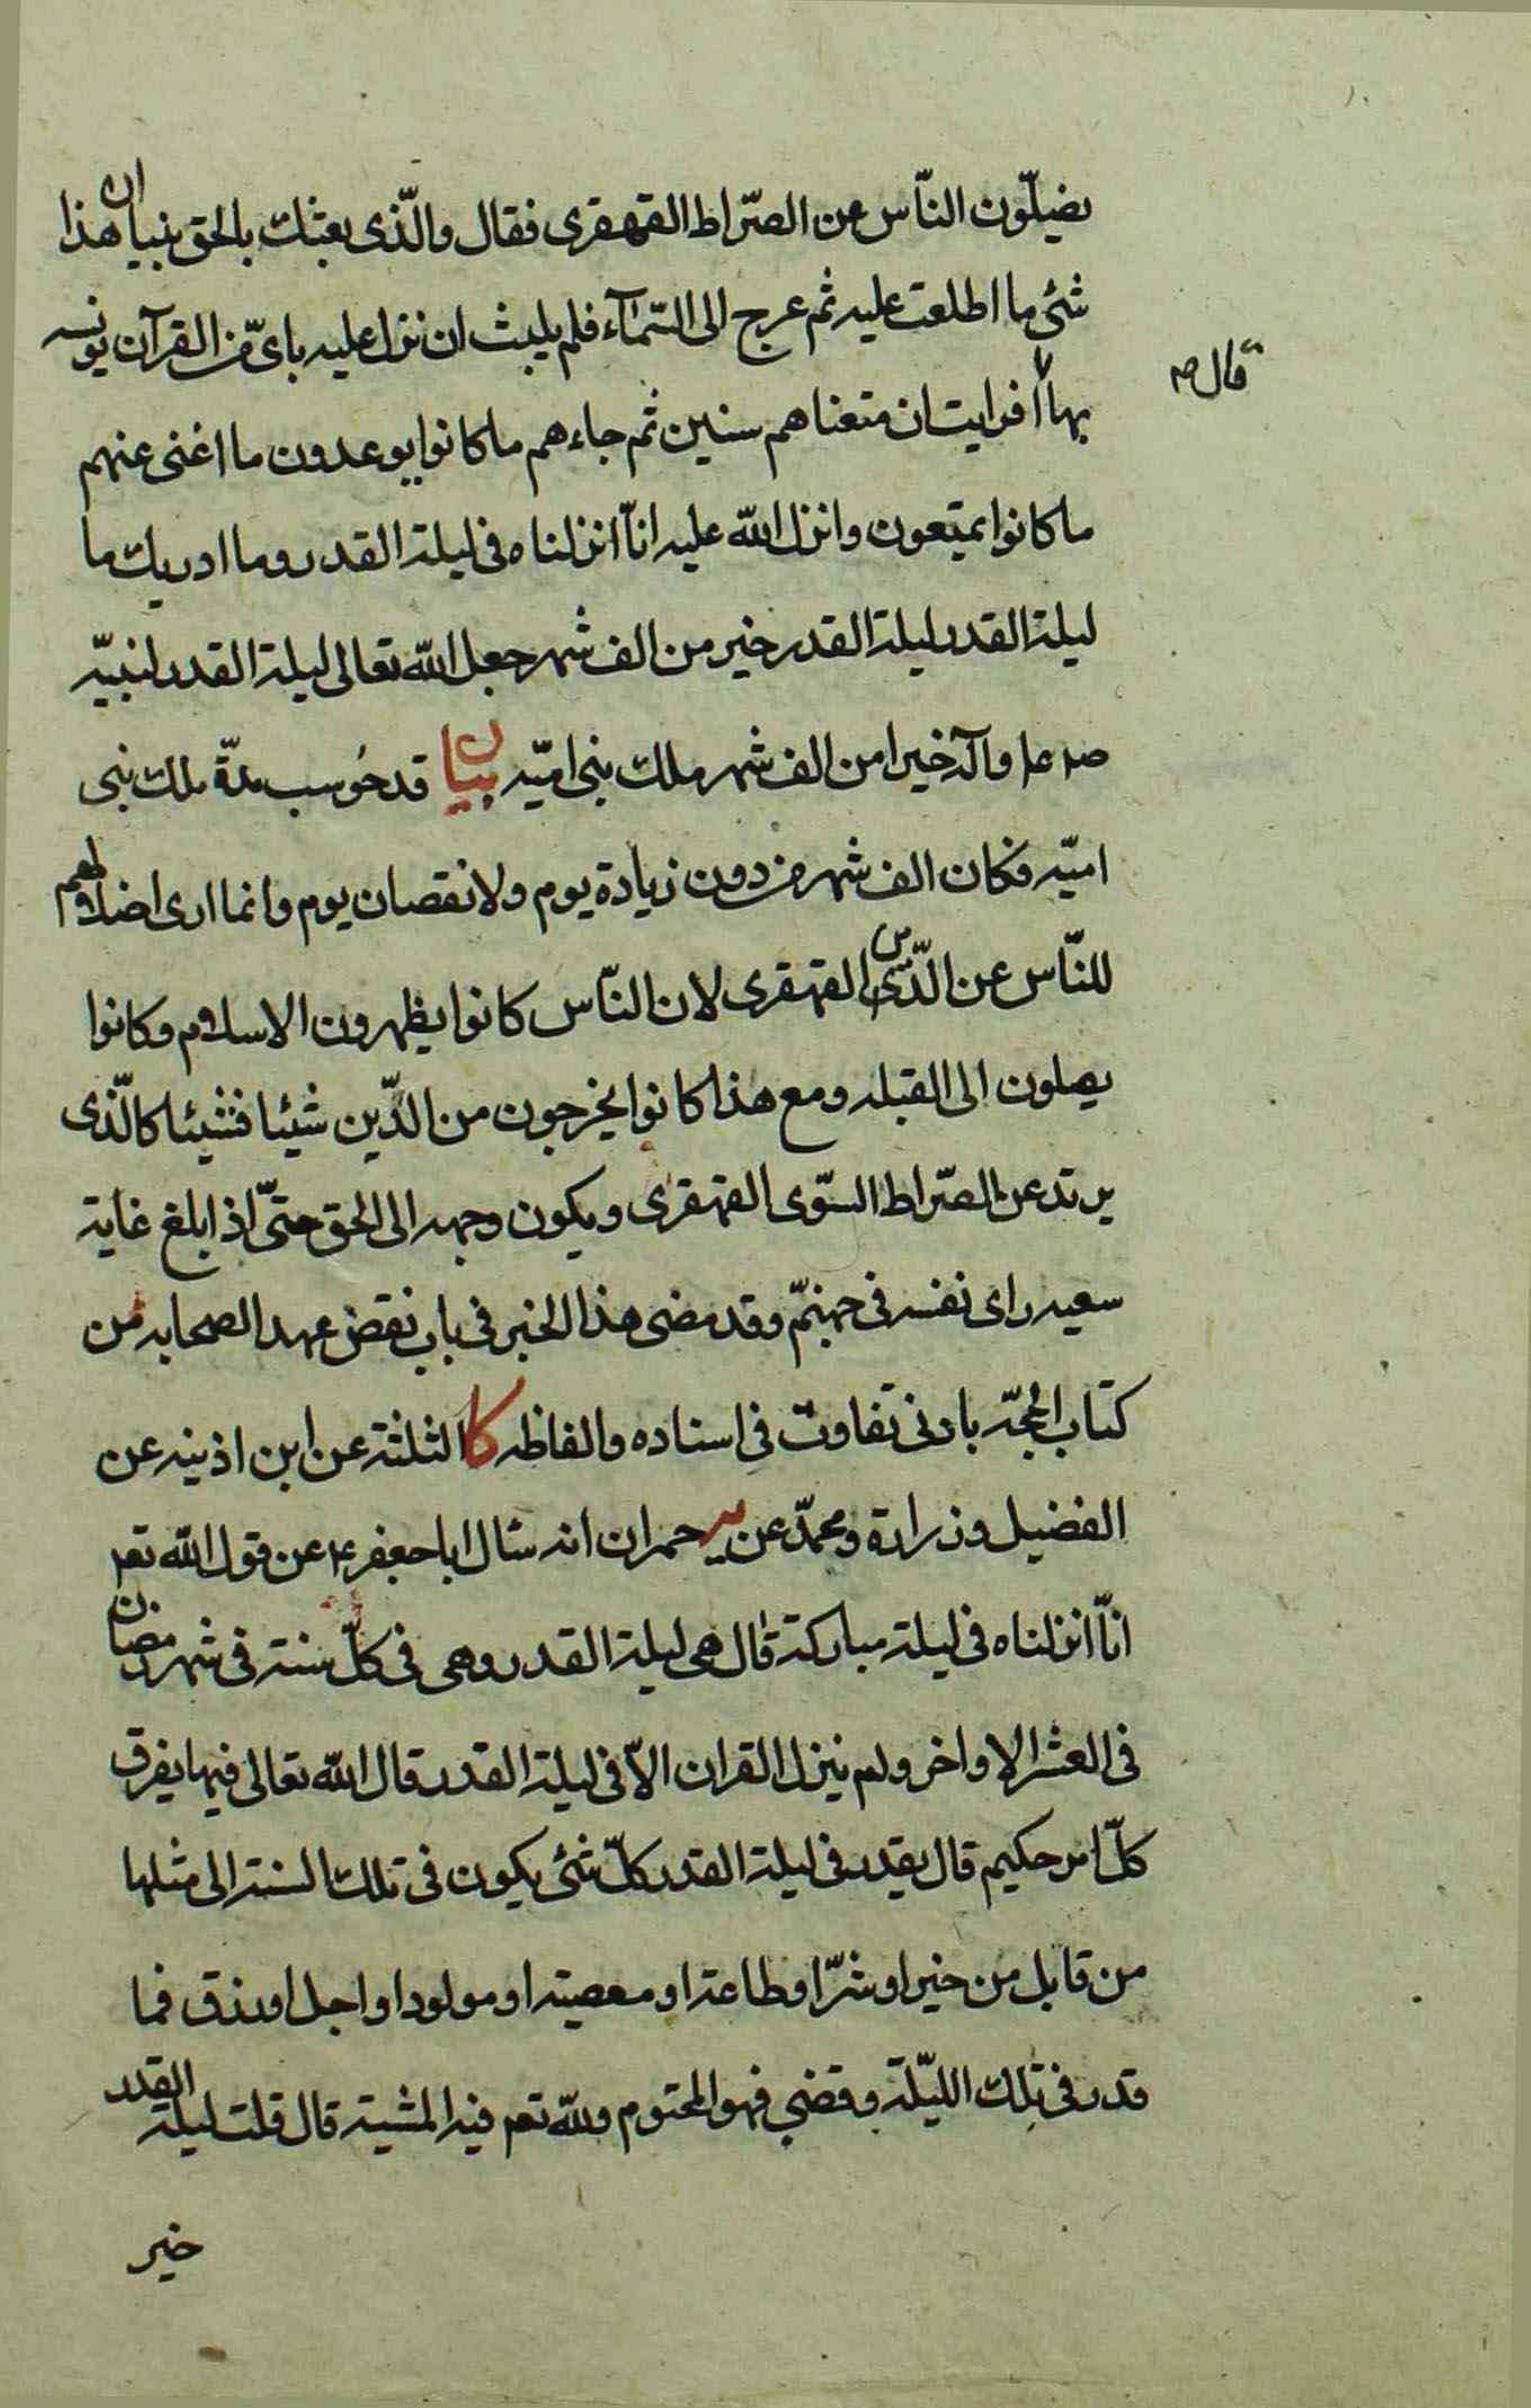 يضلّون النّاس عن الصّراط القهقرى فقال والّذى بعثك بالحق نبيا ان هذا
شئ ما اطلعت عليه ثم عرج الى السّمآء فلم يلبث ان نزل عليه باى من القرآن يونسه
قال ص
بها افرايت ان متعناهم سنين ثم جاءهم ما كانوا يوعدون ما اغنى عنهم
ما كانوا يمتعون وانزل الله عليه انّا انزلناه فى ليلة القدر وما ادريك ما
ليلة القدر ليلة القدر خير من الف شهر جعل الله تعالى ليلة القدر لنبيّه
ص ع وآله خيرا من الف شهر ملك بنى اميّه بيان قد حُوسب مدّة ملك بنى
اميّه فكان الف شهر من دون زيادة يوم ولا نقصان يوم وانما ارى اضلالهم
للنّاس عن الدّين القهقرى لان النّاس كانوا يظهرون الاسلام وكانوا
يصلون الى القبله ومع هذا كانوا يخرجون من الدّين شيئا فشيئا كالّذى
يرتد عن الصّراط السّوى القهقرى ويكون وجهه الى الحق حتّى اذا بلغ غاية
سعيه راى نفسه فى جهنّم وقد مضى هذا الخبر فى باب نقض عهد الصحابه من
كتاب الحجّه بادنى تفاوت فى اسناده والفاظه كا الثلثة عن ابن اذينه عن
الفضيل وزرارة ومحمّد عن حمران انه سئال ابا جعفر ع عن قول الله تعم
انّا انزلناه فى ليلة مباركة قال هى ليلة القدر وهى فى كلّ سنة فى شهر رمضان
فى العشر الاواخر ولم ينزل القران الاّ فى ليلة القدر قال الله تعالى فيها يفرق
كلّ امر حكيم قال يقدر فى ليلة القدر كلّ شئ يكون فى تلك السنة الى مثلها
من قابل من خير او شرّ او طاعة او معصية او مولود او اجل او رزق فما
قدر فى تلك اللّيلة وقضي فهو المحتوم ولله تعم فيه المشية قال قلت ليلة القدر
خير